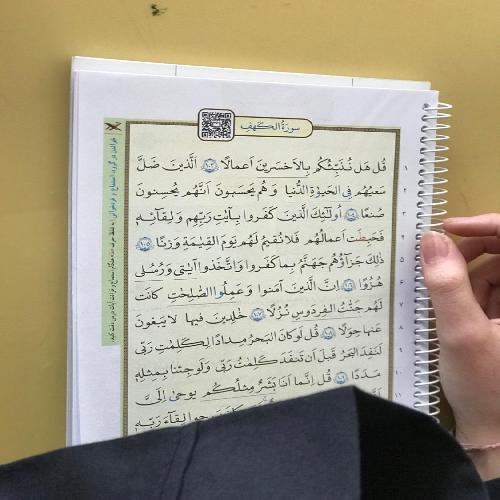 سورة الكهف
قُل هَل نُنَبِّئُكُم بِالاَخسَرینَ اَعمالًا ﴿١٠٣﴾ اَلَّذینَ ضَلَّ
سَعیُهُم فِی الحَیوٰةِ الدُّنیا وَ هُم یَحسَبونَ اَنَّهُم یُحسِنونَ
صُنعًا ﴿١٠٤﴾ اُولٰئِكَ الَّذینَ كَفَروا بِـٔایٰتِ رَبِّهِم وَ لِقائِهٖ
فَحَبِطَت اَعمالُهُم فَلا نُقیمُ لَهُم یَومَ القِیٰمَةِ وَزنًا ﴿١٠٥﴾
ذٰلِكَ جَزآؤُهُم جَهَنَّمُ بِما كَفَروا وَ اتَّخَذوا ءایٰتی وَ رُسُلی
هُزُوًا ﴿١٠٦﴾ اِنَّ الَّذینَ ءامَنوا وَ عَمِلُوا الصّٰلِحٰتِ كانَت
لَهُم جَنّٰتُ الفِردَوسِ نُزُلًا ﴿١٠٧﴾ خٰلِدینَ فیها لا یَبغونَ
عَنها حِوَلًا ﴿١٠٨﴾ قُل لَو كانَ البَحرُ مِدادًا لِكَلِمٰتِ رَبّی
لَنَفِدَ البَحرُ قَبلَ اَن تَنفَدَ كَلِمٰتُ رَبّی وَ لَو جِئنا بِمِثلِهٖ
مَدَدًا ﴿١٠٩﴾ قُل اِنَّما اَنَا بَشَرٌ مِثلُكُم یوحیٰ اِلَیَّ
لِقآءَ رَبِّهٖ